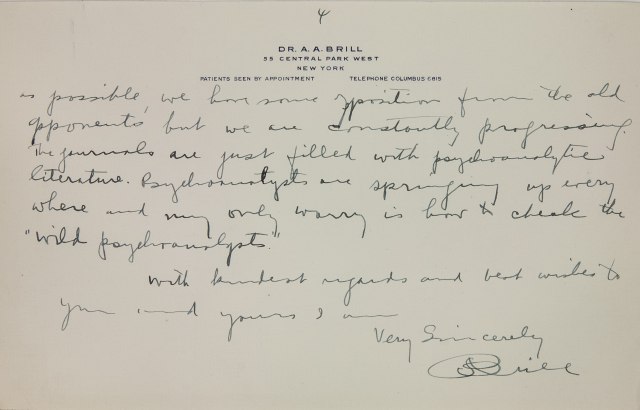 4
DR. A. A. BRILL
55 CENTRAL PARK WEST
NEW YORK
PATIENTS SEEN BY APPOINTMENT TELEPHONE COLUMBUS 6815
as possible, we have some opposition from the old
opponents but we are constantly progressing.
The journals are just filled with psychoanalytic
literature. Psychoanalysts are springing up every
where and my only worry is how to cheak the
"wild psychoanalysts."
With kindest regards and best wishes to
you and yours I am
Very Sincerely
Brill